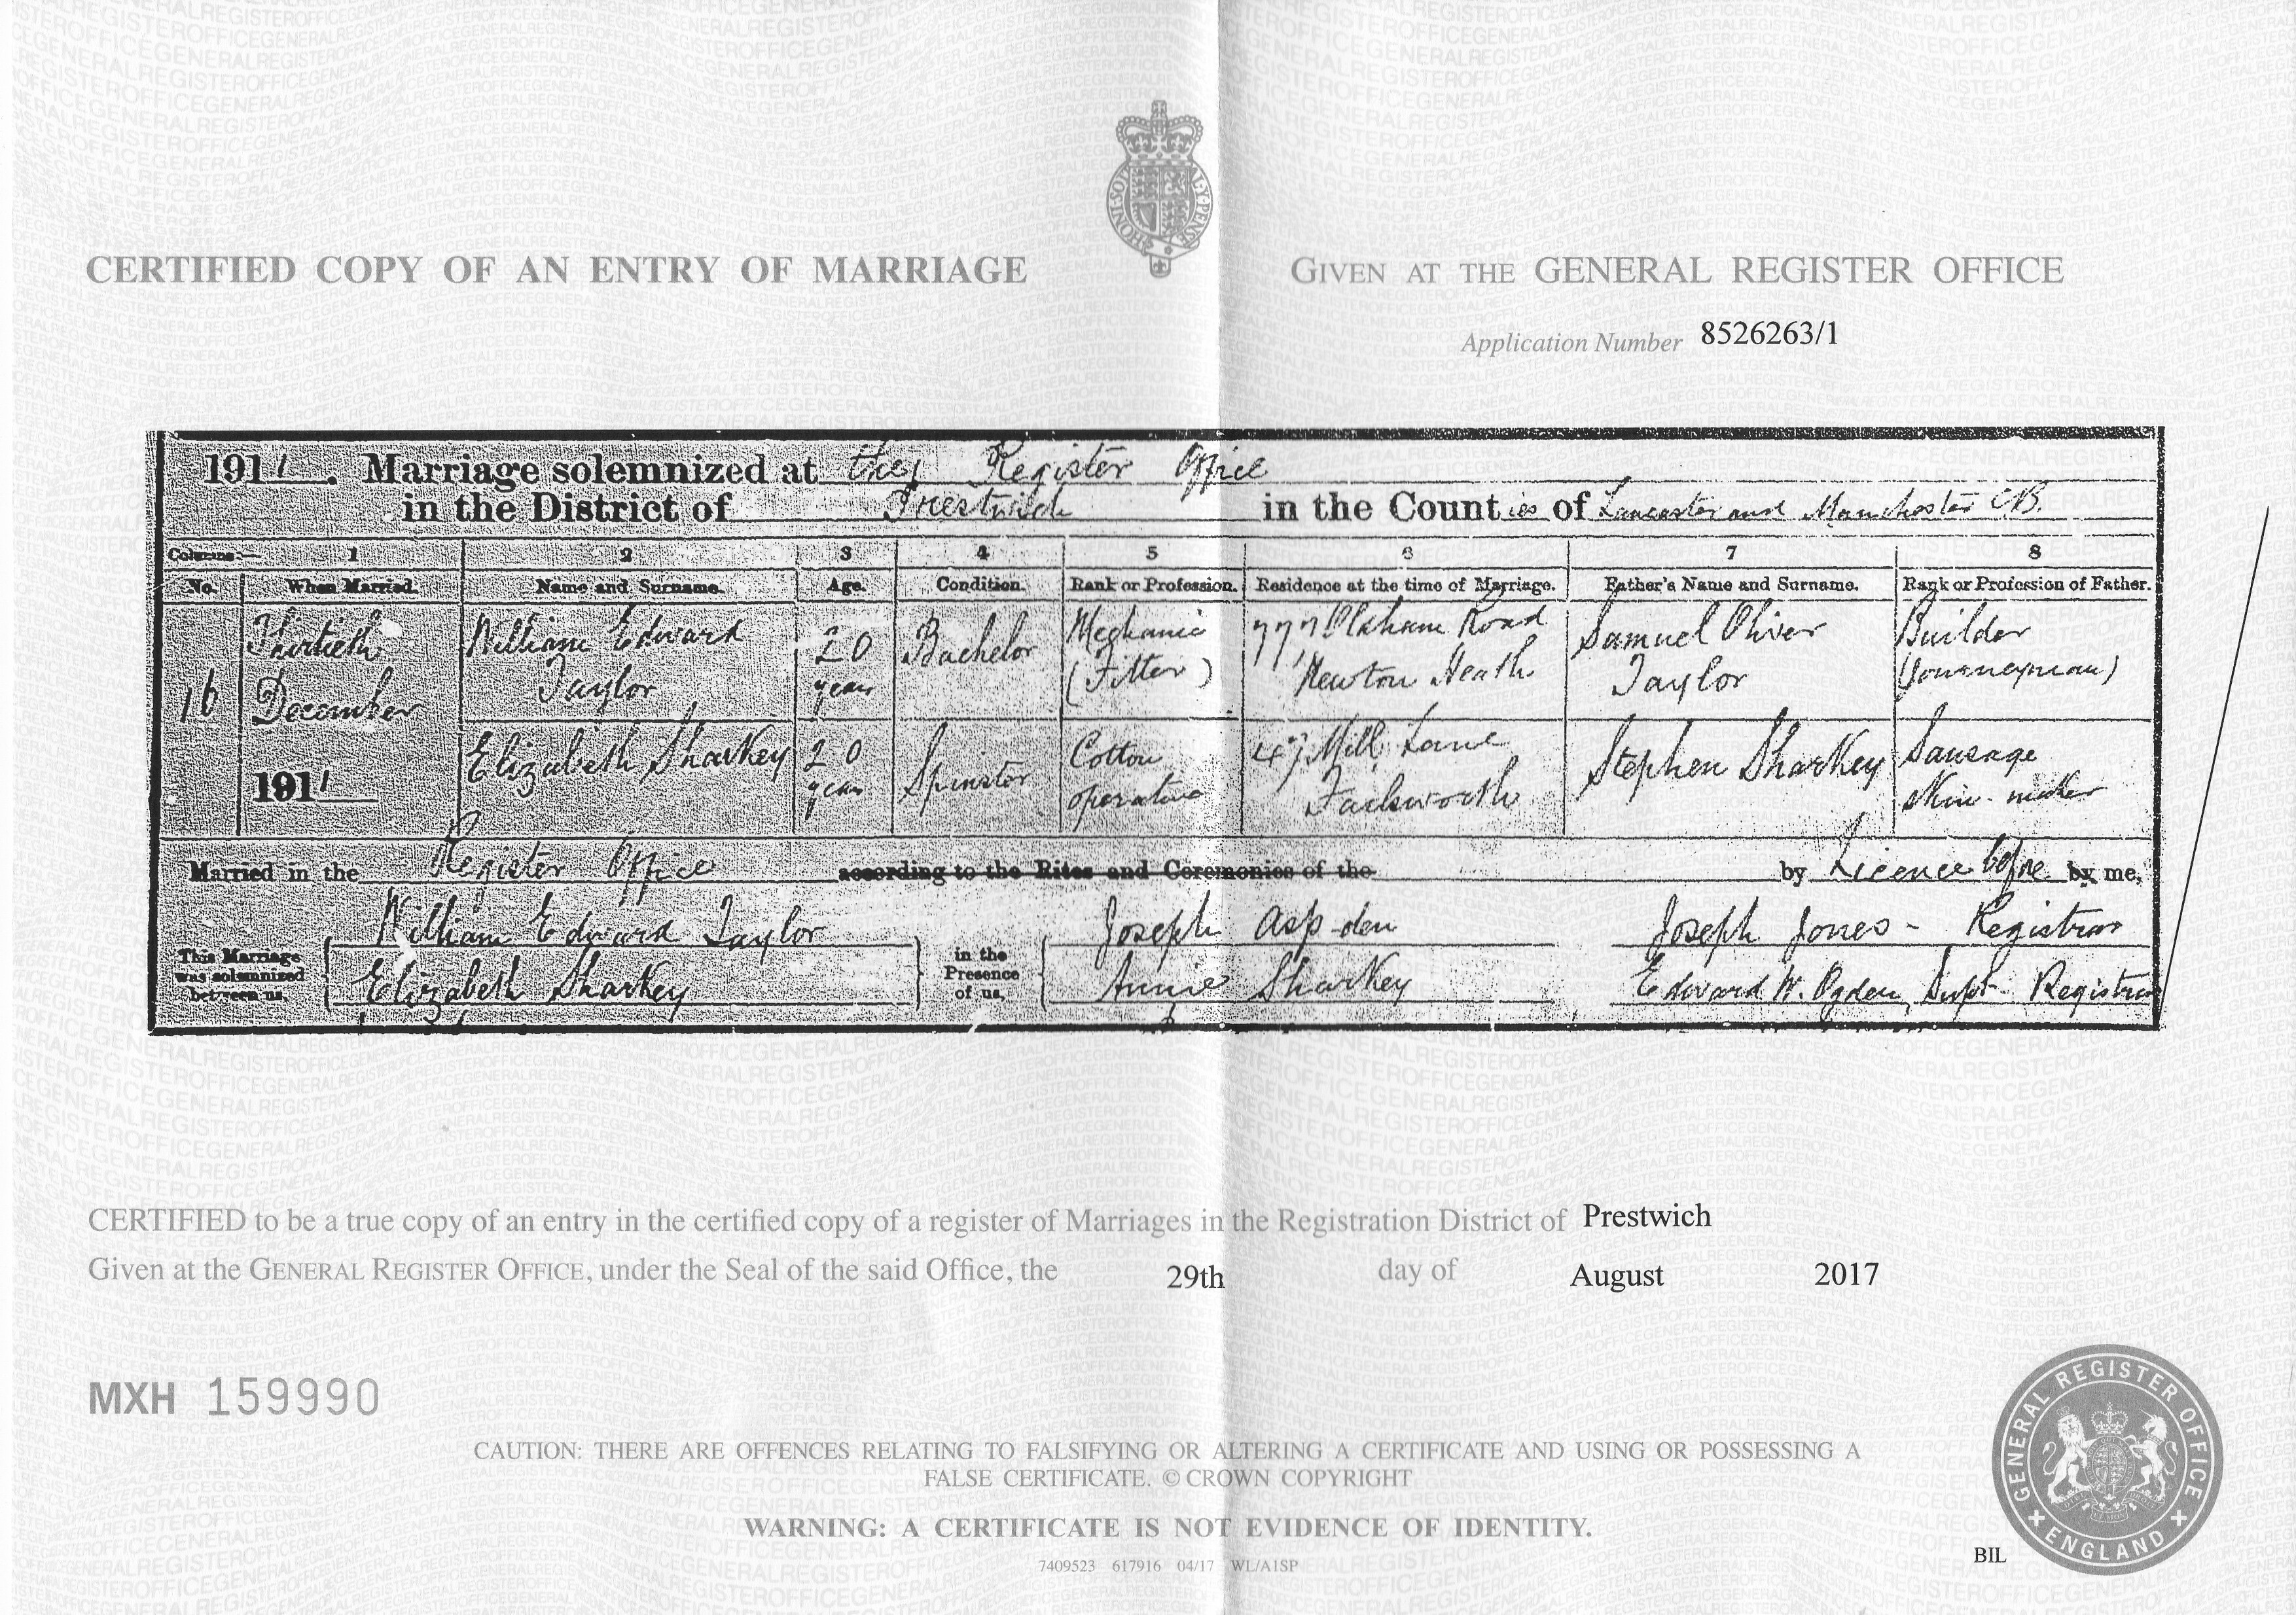 CERTIFIED COPY OF AN ENTRY OF MARRIAGE
HONI·SOIT AL·Y·PENSE
GIVEN AT THE GENERAL REGISTER OFFICE
Application Number 8526263/1
1911. Marriage solemnized at the Register Office
in the District of Prestwich in the Counties of Lancaster and Manchester C.B.
Columns:— 1 2 3 4 5 6 7 8
No. When Married. Name and Surname. Age. Condition. Rank or Profession. Residence at the time of Marriage. Father's Name and Surname. Rank or Profession of Father.
16 Thirtieth December 1911
William Edward Taylor 20 years Bachelor Mechanic (Fitter) 777 Oldham Road Newton Heath Samuel Oliver Taylor Builder (Journeyman)
Elizabeth Sharkey 20 years Spinster Cotton operative 47 Mill Lane Failsworth Stephen Sharkey Sausage Skin-maker
Married in the Register Office according to the Rites and Ceremonies of the by Licence before by me,
This Marriage was solemnized between us,
William Edward Taylor
Elizabeth Sharkey
in the Presence of us,
Joseph Aspden
Annie Sharkey
Joseph Jones - Registrar
Edward W. Ogden, Supt- Registrar
CERTIFIED to be a true copy of an entry in the certified copy of a register of Marriages in the Registration District of Prestwich
Given at the GENERAL REGISTER OFFICE, under the Seal of the said Office, the 29th day of August 2017
MXH 159990
CAUTION: THERE ARE OFFENCES RELATING TO FALSIFYING OR ALTERING A CERTIFICATE AND USING OR POSSESSING A
FALSE CERTIFICATE. © CROWN COPYRIGHT
WARNING: A CERTIFICATE IS NOT EVIDENCE OF IDENTITY.
7409523 617916 04/17 WL/A1SP
BIL
GENERAL REGISTER OFFICE
ENGLAND